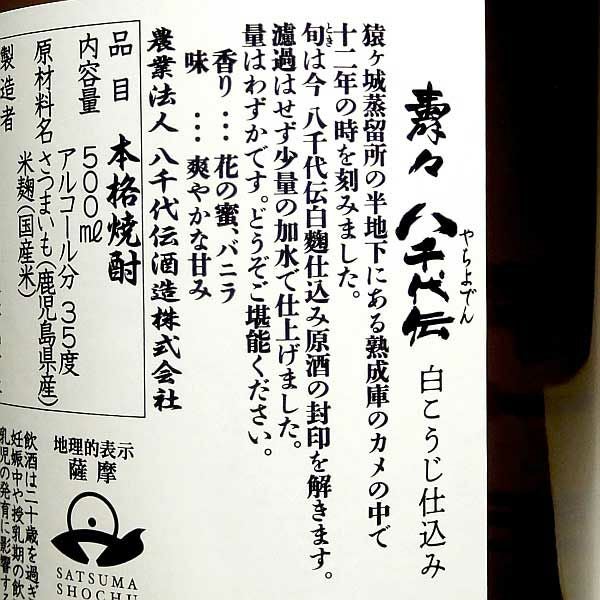 壽々 八千代伝 白こうじ仕込み
やちよでん
猿ヶ城蒸留所の半地下にある熟成庫のカメの中で
十二年の時を刻みました。
旬は今 八千代伝白麹仕込み原酒の封印を解きます。
とき
濾過はせず少量の加水で仕上げました。
量はわずかです。どうぞご堪能ください。
香り … 花の蜜、バニラ
味 … 爽やかな甘み
農業法人 八千代伝酒造株式会社
品目 本格焼酎
内容量 500ml
アルコール分 35度
原材料名 さつまいも(鹿児島県産)
米麹(国産米)
製造者
地理的表示
薩摩
SATSUMA
SHOCHU
飲酒は二十歳を過ぎ
妊娠中や授乳期の飲
乳児の発育に影響する